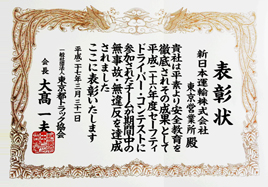 表彰状
新日本運輸株式会社
東京営業所 殿
貴社は平素より安全教育を
徹底されその成果として
平成二十六年度セーフティ
ドライバー・コンテストに
参加されたチームが期間中の
無事故・無違反を達成
されました
ここに表彰いたします
平成二十七年三月三十一日
一般社団法人 東京都トラック協会
会長 大髙一夫